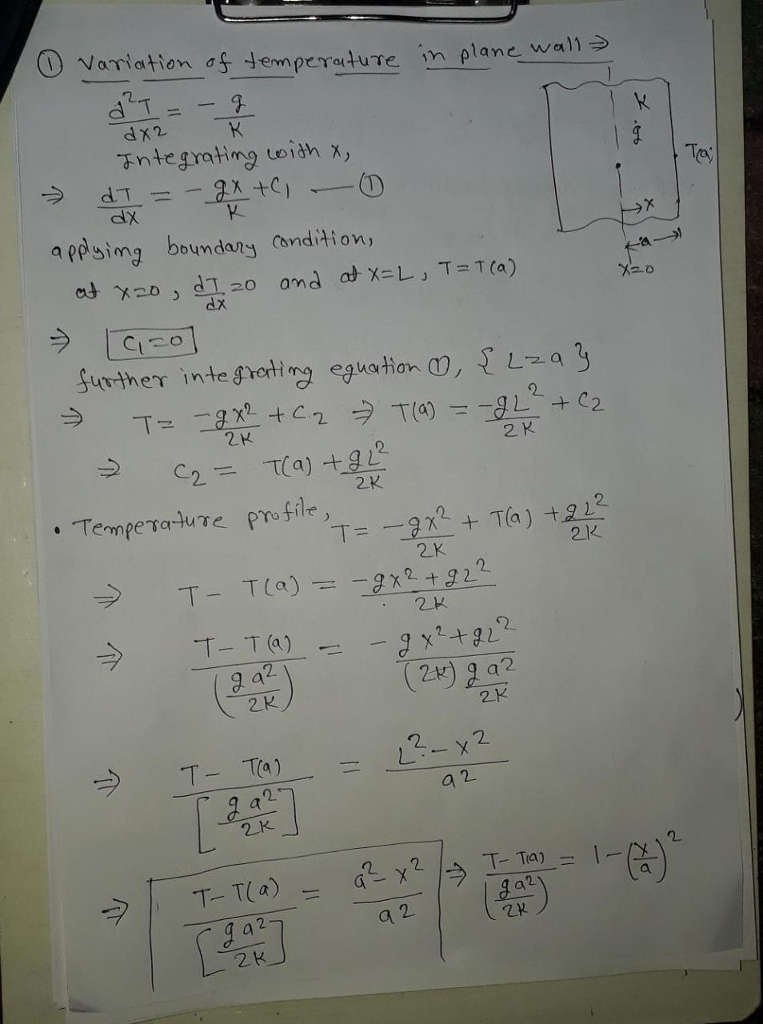 ① Variation of temperature in plane wall ⇒
d²T/dx2 = - g/K
Integrating with x,
⇒ dT/dx = - gx/K + C1 — ①
applying boundary condition,
at x=0, dT/dx =0 and at x=L, T=T(a)
⇒ C1=0
further integrating equation ①, {L=a}
⇒ T= -gx²/2K + C2 ⇒ T(a) = -gL²/2K + C2
⇒ C2 = T(a) + gL²/2K
• Temperature profile, T= -gx²/2K + T(a) + gL²/2K
⇒ T - T(a) = -gx²+gL²/2K
⇒ T-T(a)/(ga²/2K) = -gx²+gL²/(2K) ga²/2K
⇒ T - T(a)/[ga²/2K] = L²-x²/a2
⇒ T-T(a)/[ga²/2K] = a²-x²/a2 ⇒ T-T(a)/(ga²/2K) = 1-(x/a)²
K
ġ
T(a)
→x
a
x=0